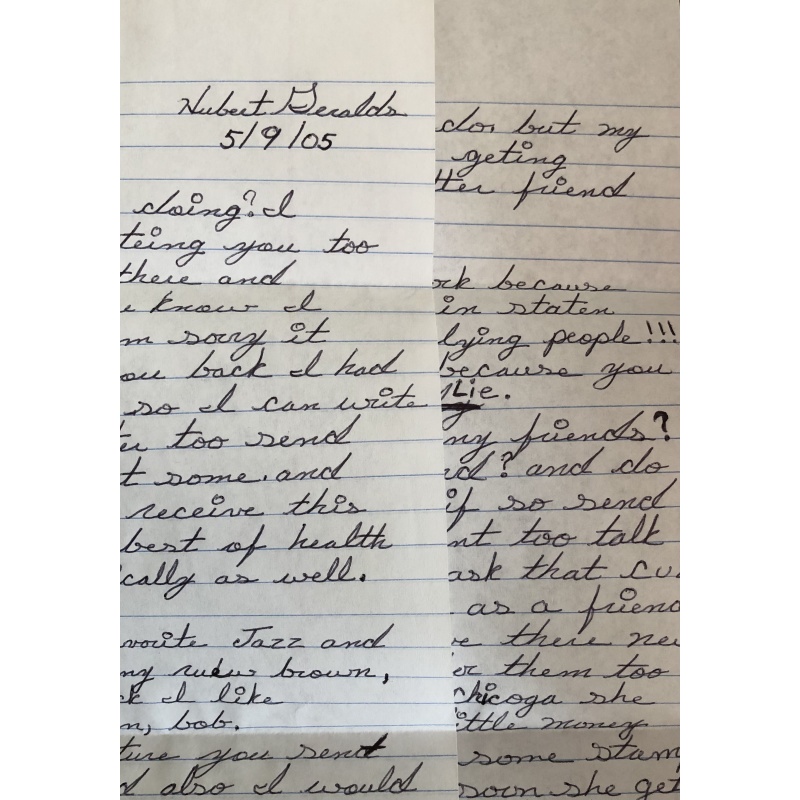 Hubert Geralds
5/9/05
doing? I
teing you too
there and
know I
m sorry it
ou back I had
so I can write
too send
t some. and
receive this
best of health
cally as well.
vorite Jazz and
ny brown,
ck I like
n, bob.
ture you send
d also I would
do, but my
geting
tter friend
ork because
in staten
lying people!!!
because you
Lie.
my friends?
nd? and do
if so send
nt too talk
ask that cu
as a friend
ve there nev
er them too
chicoga she
ittle money
some stam
soon she get